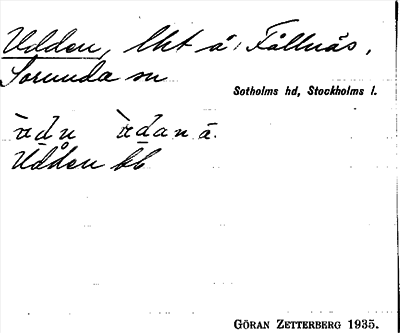 Udden, lht å Fållnäs,
Sorunda sn
Sotholms hd, Stockholms l.
Udden bb
GÖRAN ZETTERBERG 1935.